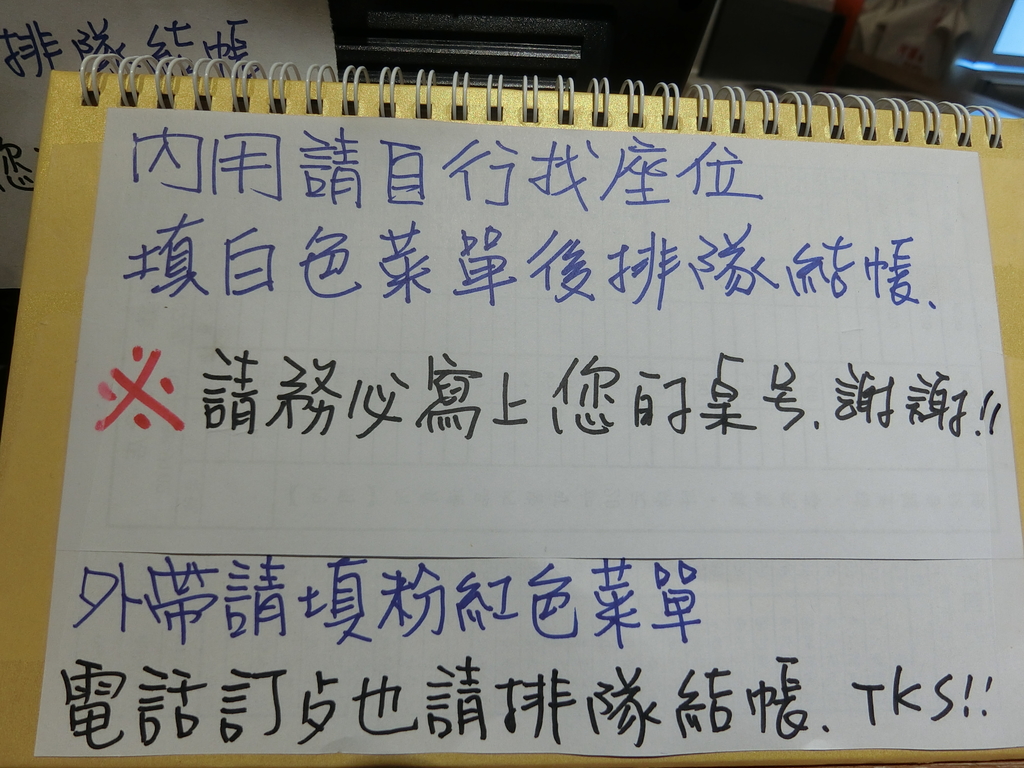 排隊結帳
您
內用請自行找座位
填白色菜單後排隊結帳.
※請務必寫上您的桌号.謝謝!!
外帶請填粉紅色菜單
電話訂歺也請排隊結帳. TKS!!